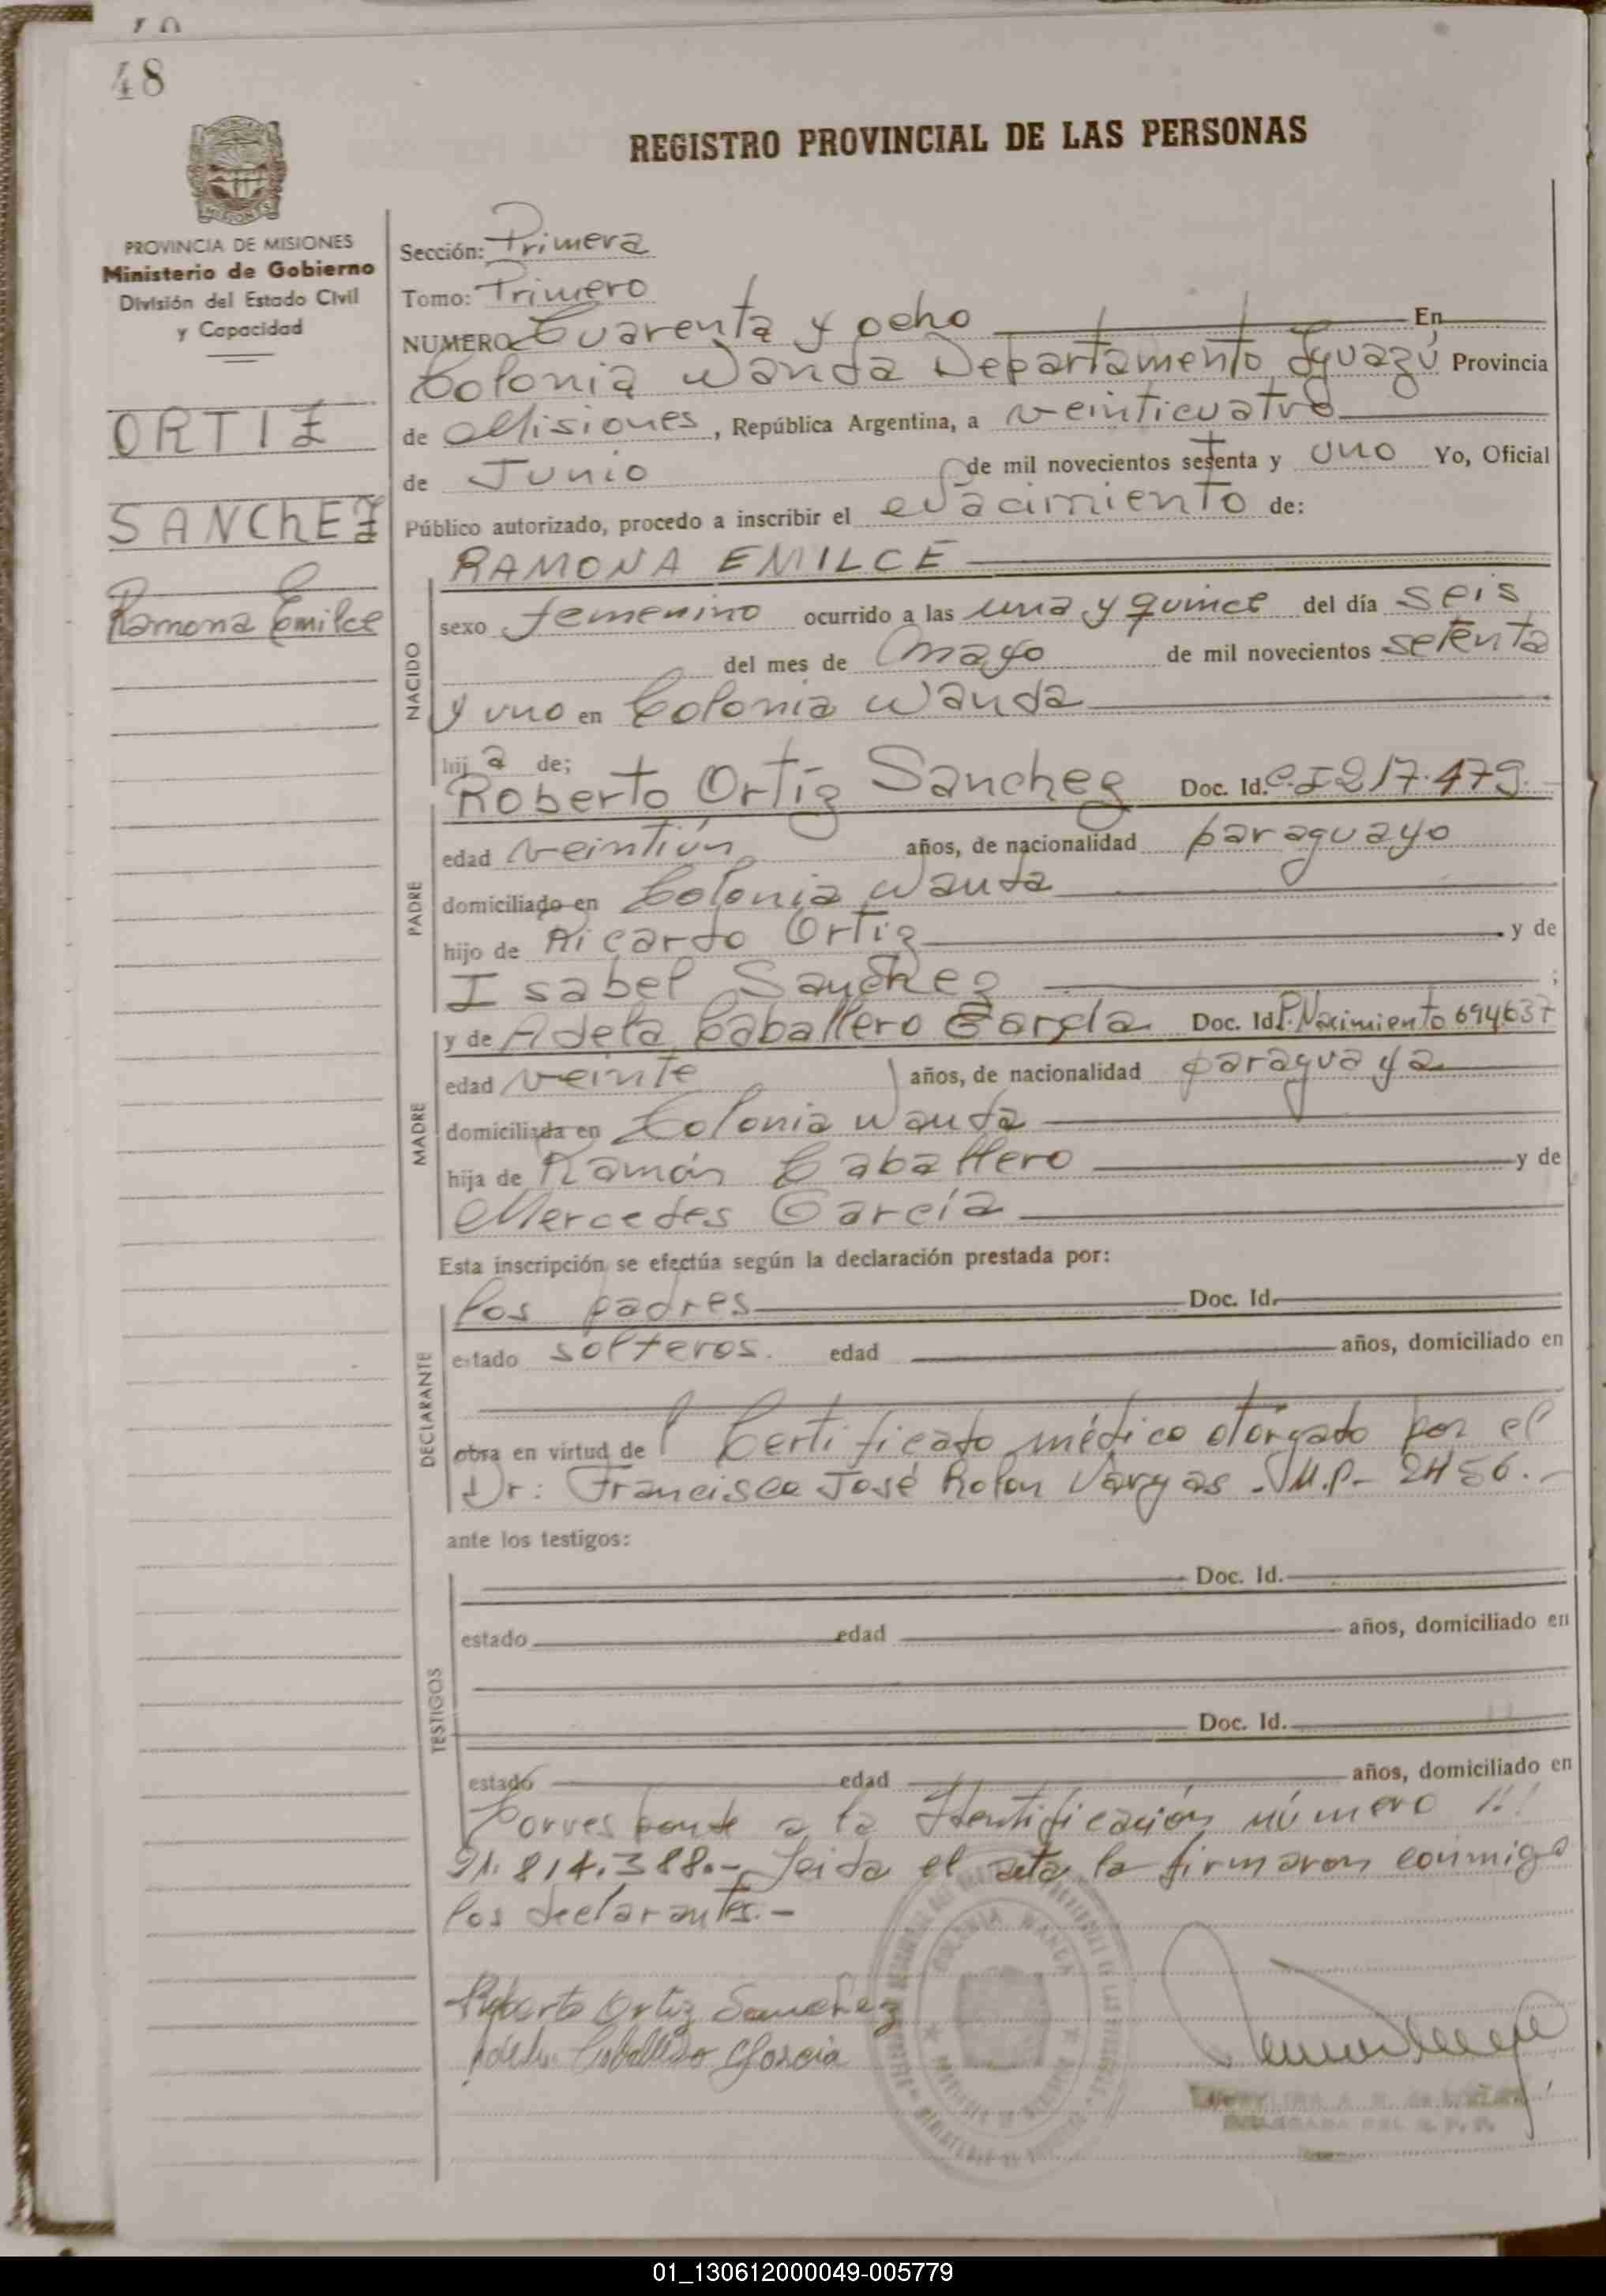 48
REGISTRO PROVINCIAL DE LAS PERSONAS
MISIONES
PROVINCIA DE MISIONES
Ministerio de Gobierno
División del Estado Civil
y Capacidad
ORTIZ
SANCHEZ
Ramona Emilce
Sección: Primera
Tomo: Primero
NUMERO Cuarenta y ocho En
Colonia Wanda Departamento Iguazú Provincia
de Misiones, República Argentina, a veinticuatro
de Junio de mil novecientos setenta y uno Yo, Oficial
Público autorizado, procedo a inscribir el Nacimiento de:
NACIDO
RAMONA EMILCE
sexo femenino ocurrido a las una y quince del día seis
del mes de mayo de mil novecientos setenta
y uno en Colonia Wanda
hij a de;
PADRE
Roberto Ortiz Sanchez Doc. Id. C.I 217.479.
edad veintiún años, de nacionalidad paraguayo
domiciliado en Colonia Wanda
hijo de Ricardo Ortiz y de
Isabel Sanchez ;
MADRE
y de Adela Caballero García Doc. Id. P. Nacimiento 694637
edad veinte años, de nacionalidad paraguaya
domiciliada en Colonia Wanda
hija de Ramón Caballero y de
Mercedes García
Esta inscripción se efectúa según la declaración prestada por:
DECLARANTE
los padres Doc. Id.
estado solteros. edad años, domiciliado en
obra en virtud de Certificado médico otorgado por el
Dr: Francisco José Rolon Vargas - M.P.- 2456.-
ante los testigos:
TESTIGOS
Doc. Id.
estado edad años, domiciliado en
Doc. Id.
estado edad años, domiciliado en
Corresponde a la Identificación número
21.814.388.- Leida el acta la firmaron conmigo
los declarantes.-
Roberto Ortiz Sanchez
Adela Caballero Garcia
COLONIA WANDA
01_130612000049-005779